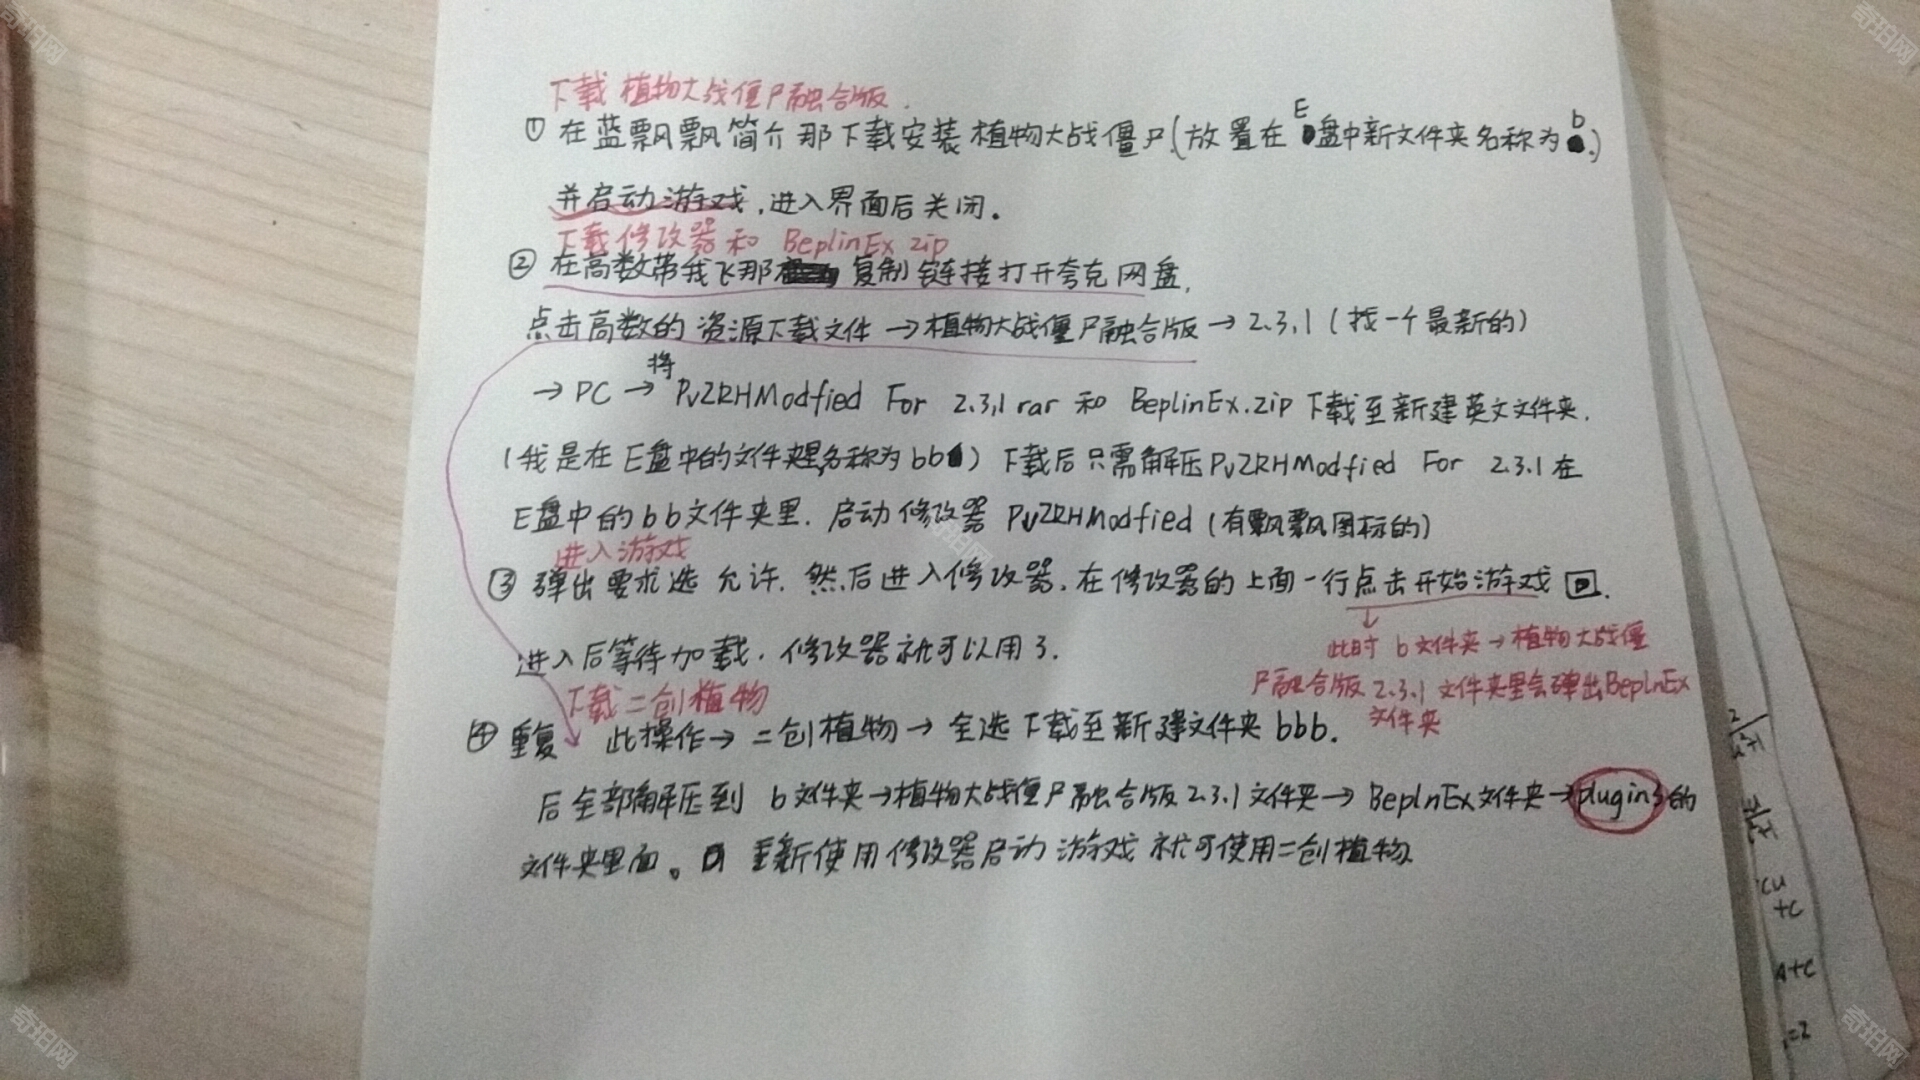 下载 植物大战僵尸融合版.
① 在蓝飘飘简介那下载安装植物大战僵尸.(放置在E盘中新文件夹名称为b.)
并启动游戏,进入界面后关闭。
下载修改器和 BeplinEx zip
② 在高数带我飞那 复制链接打开夸克网盘,
点击高数的 资源下载文件→植物大战僵尸融合版→2.3.1(找一个最新的)
→PC→将PvZRHModfied For 2.3.1 rar 和 BeplinEx.zip 下载至新建英文文件夹.
(我是在E盘中的文件夹里名称为bb) 下载后只需解压PvZRHModfied For 2.3.1在
E盘中的bb文件夹里. 启动修改器 PvZRHModfied(有飘飘图标的)
进入游戏
③ 弹出要求选 允许. 然后进入修改器.在修改器的上面一行点击开始游戏回.
此时 b文件夹→植物大战僵
尸融合版 2.3.1 文件夹里会弹出BeplnEx
文件夹
进入后等待加载.修改器就可以用了.
下载二创植物
④ 重复 此操作→二创植物→全选下载至新建文件夹bbb.
后全部解压到 b文件夹→植物大战僵尸融合版2.3.1文件夹→BeplnEx文件夹→plugins的
文件夹里面。重新使用修改器启动游戏就可使用二创植物
cu
+c
A+C
=2
奇珀网
奇珀网
奇珀网
奇珀网
奇珀网